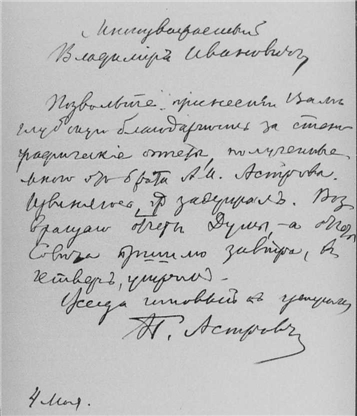 Многоуважаемый
Владимiръ Ивановичъ
Позвольте принести Вамъ
глубокую благодарность за стено-
графическiе отчеты, полученные
мною отъ брата А.И. Астрова.
Извиняюсь, задержалъ. Воз
вращаю отчеты Думы, – а отчеты
Совѣта пришлю завтра, въ
четвергъ, утромъ.
Всегда готовый къ услугамъ
П. Астровъ
4 мая.